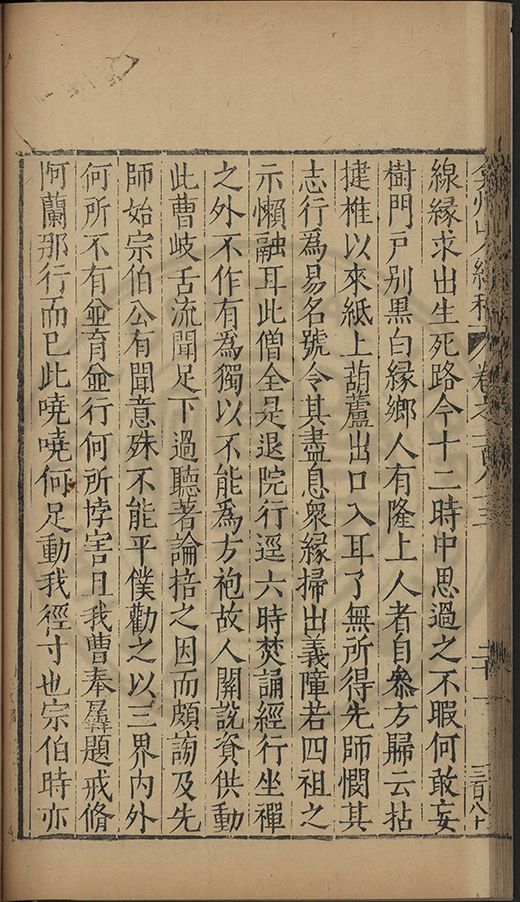 弇州山人續稿 卷之一百八十三 二十一 三百八十
線緣求出生死路今十二時中思過之不暇何敢妄
樹門戶別黑白緣鄉人有隆上人者自叅方歸云拈
揵椎以來紙上葫蘆出口入耳了無所得先師憫其
志行爲易名號令其盡息衆緣掃出義障若四祖之
示懶融耳此僧全是退院行逕六時焚誦經行坐禪
之外不作有為獨以不能爲方袍故人關說資供動
此曹岐舌流聞足下過聽著論掊之因而頗謗及先
師始宗伯公有聞意殊不能平僕勸之以三界內外
何所不有並育並行何所悖害且我曹奉彝題戒脩
阿蘭那行而已此嘵嘵何足動我徑寸也宗伯時亦